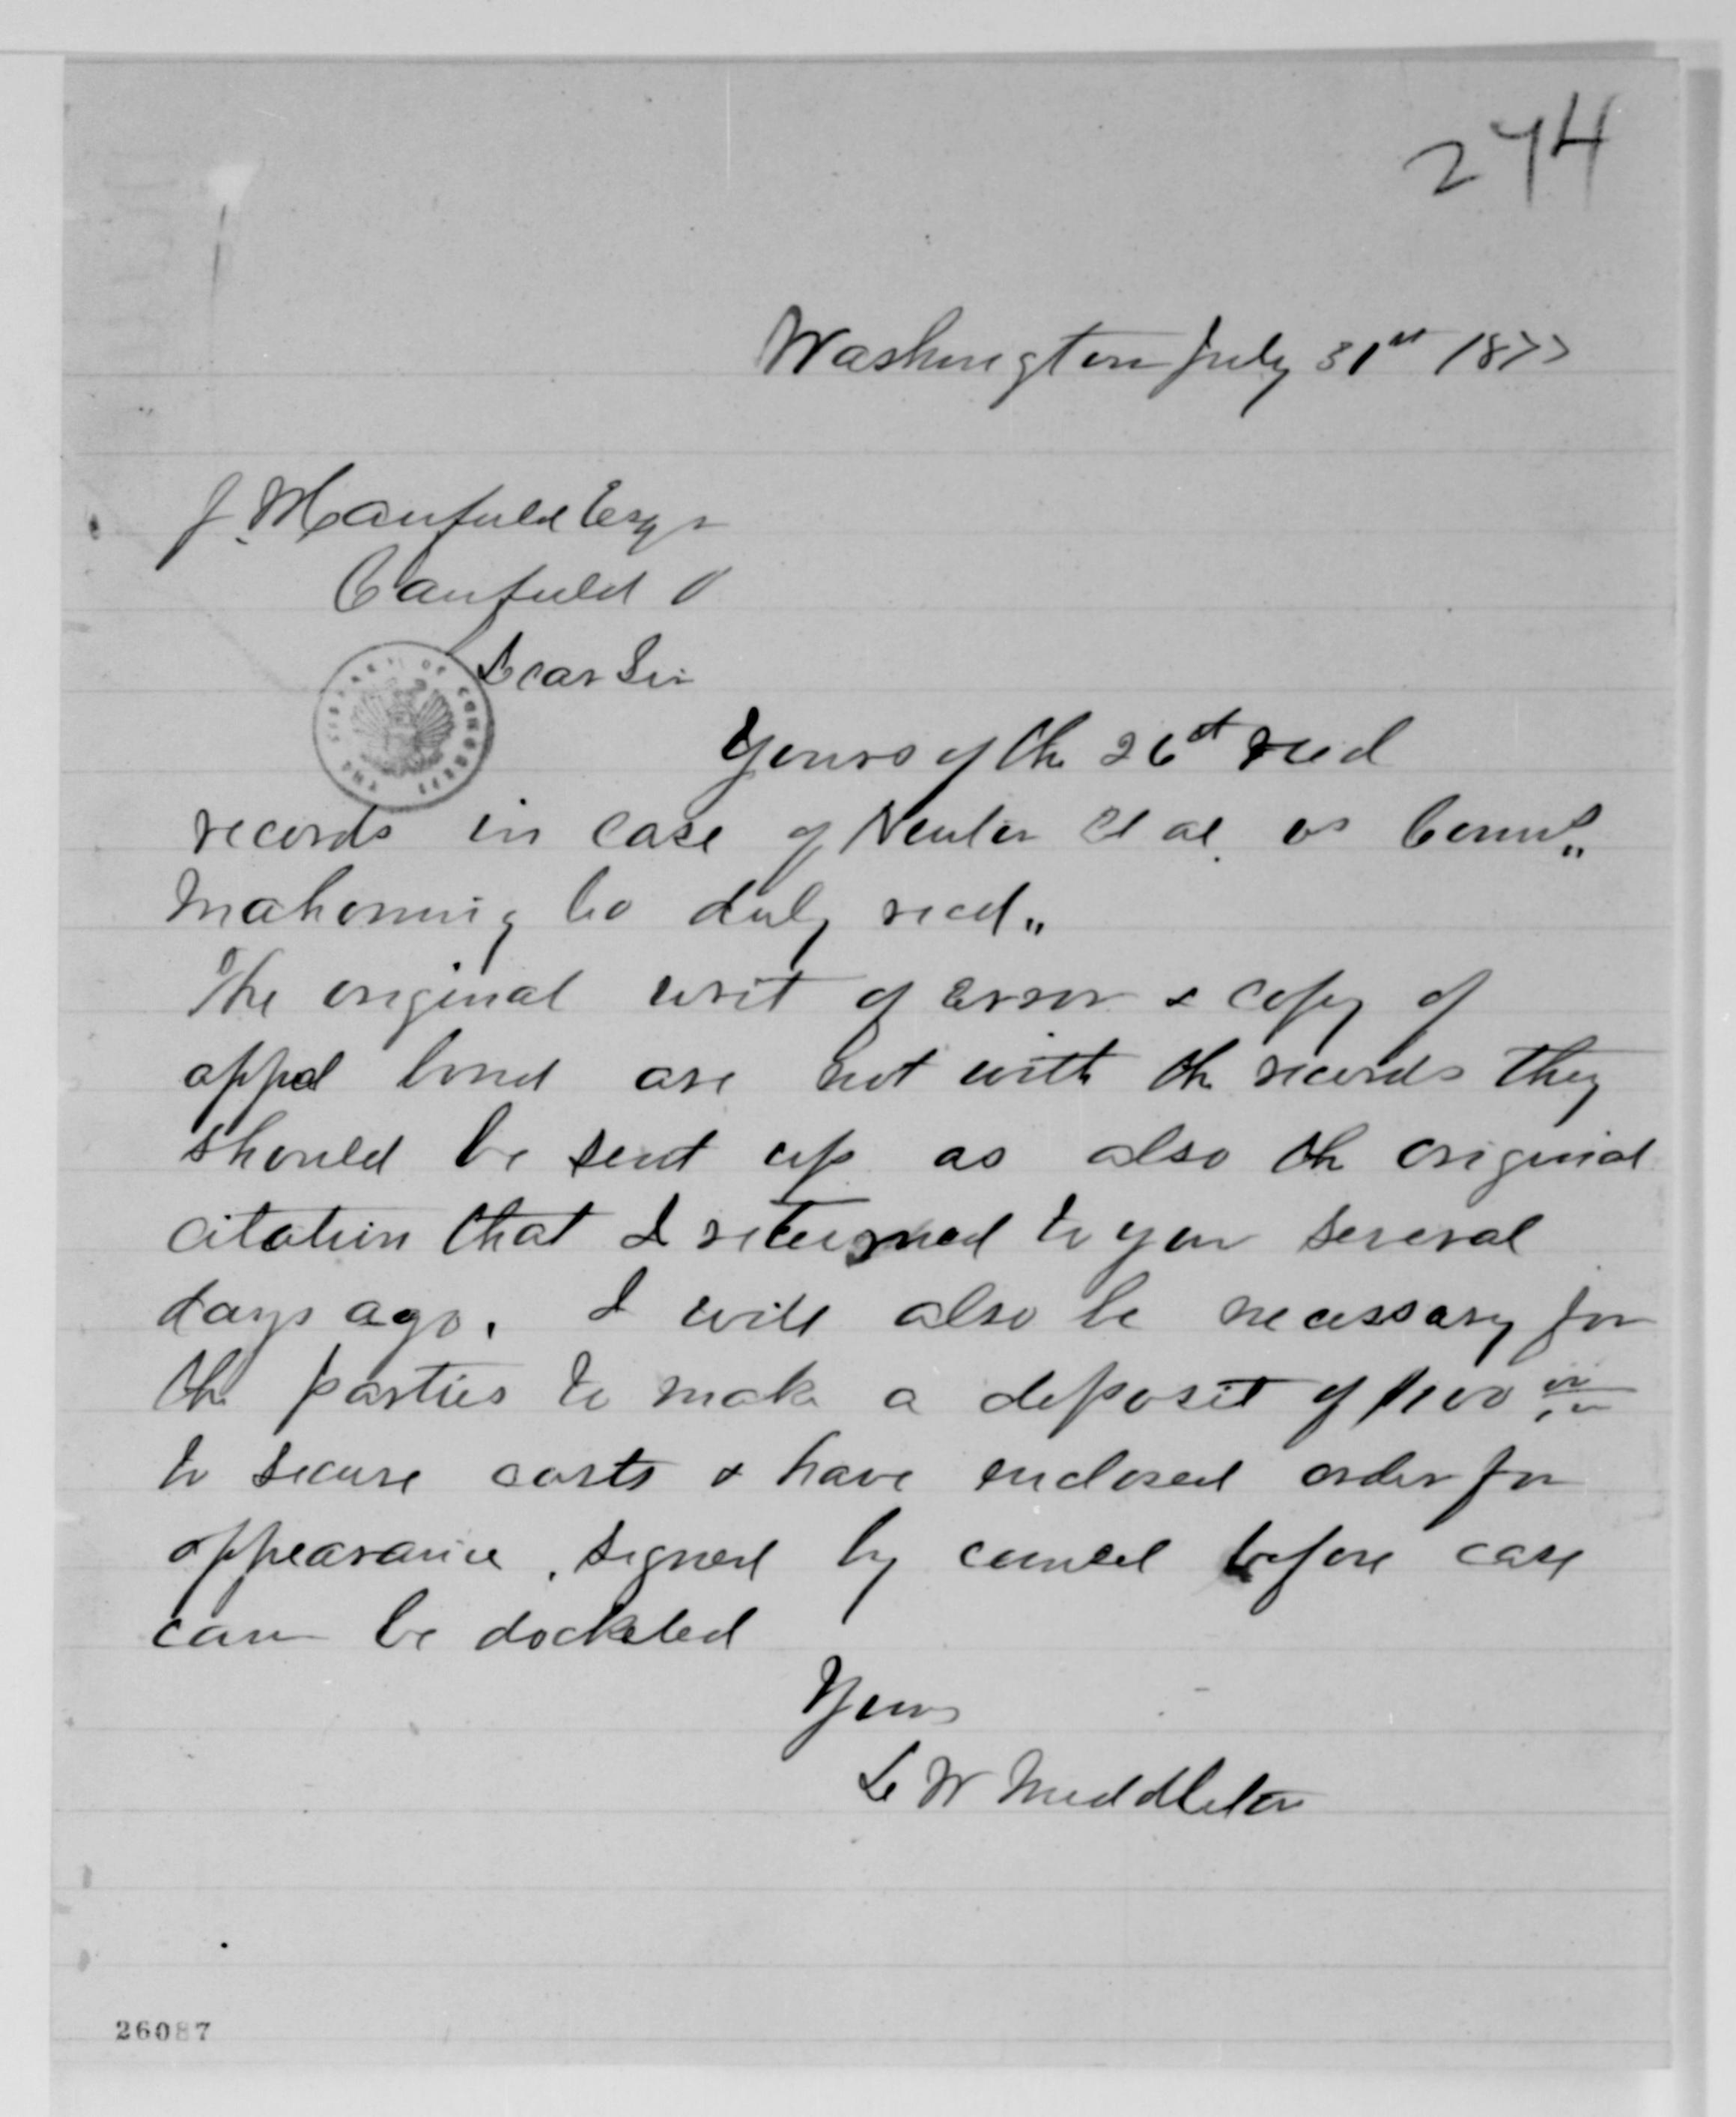 274
Washington July 31st 1877
J. M Canfield Esqr
Canfield O
Dear Sir
THE LIBRARY OF CONGRESS
Yours of the 26th
records in case of et al. vs Comrs
Mahoning Co duly recd
The original writ of Error & copy of
appeal bond are not with the records they
should be sent up as also the original
citation that I returned to you several
days ago. I will also be necessary for
the parties to make a deposit of $100
to secure costs & have enclosed order for
appearance, signed by counsel before case
can be docketed
Yours
D W Middleton
26087